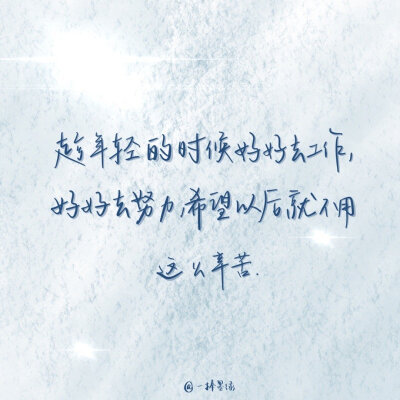 趁年轻的时候好好去工作,
好好去努力,希望以后就不用
这么辛苦.
@一